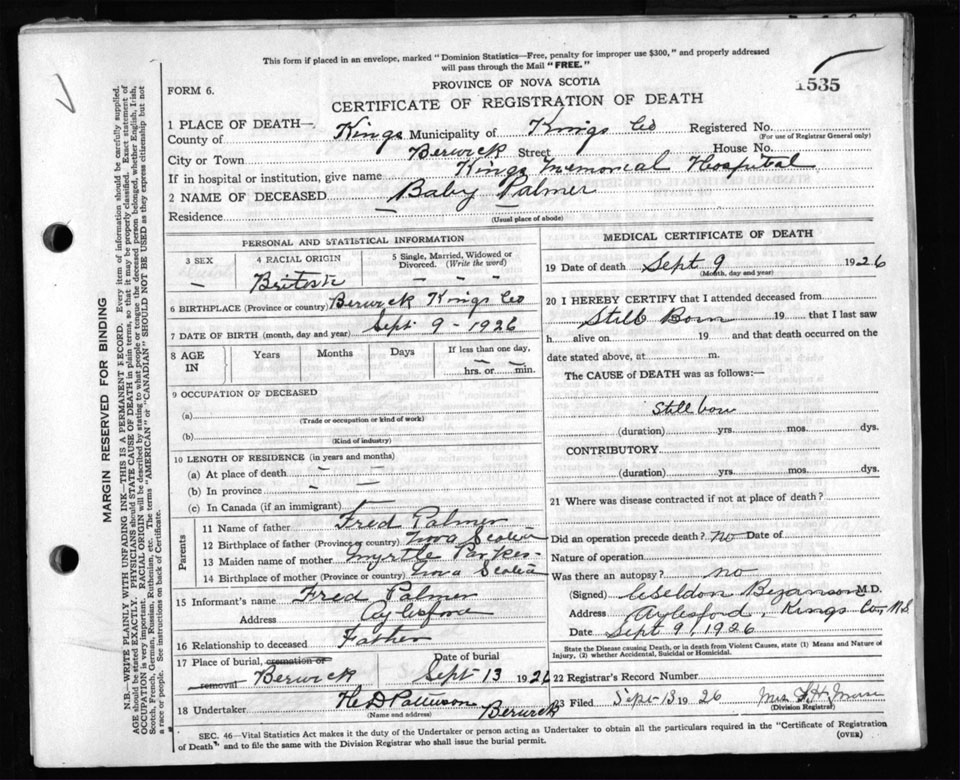 This form if placed in an envelope, marked "Dominion Statistics—Free, penalty for improper use $300," and properly addressed
will pass through the Mail "FREE."
1535
PROVINCE OF NOVA SCOTIA
FORM 6.
CERTIFICATE OF REGISTRATION OF DEATH
1 PLACE OF DEATH—
County of Kings Municipality of Kings Co Registered No.
(For use of Registrar General only)
City or Town Berwick Street House No.
If in hospital or institution, give name Kings Memorial Hospital
2 NAME OF DECEASED Baby Palmer
Residence — —
(Usual place of abode)
PERSONAL AND STATISTICAL INFORMATION
3 SEX 4 RACIAL ORIGIN 5 Single, Married, Widowed or Divorced. (Write the word)
— British — —
6 BIRTHPLACE (Province or country) Berwick Kings Co
7 DATE OF BIRTH (month, day and year) Sept 9 - 1926
8 AGE IN Years Months Days If less than one day,
— hrs. or — min.
9 OCCUPATION OF DECEASED
(a)
(Trade or occupation or kind of work)
(b)
(Kind of industry)
10 LENGTH OF RESIDENCE (in years and months)
(a) At place of death — —
(b) In province — —
(c) In Canada (if an immigrant) —
Parents
11 Name of father Fred Palmer
12 Birthplace of father (Province or country) Nova Scotia
13 Maiden name of mother Myrtle Parker
14 Birthplace of mother (Province or country) Nova Scotia
15 Informant's name Fred Palmer
Address Aylesford
16 Relationship to deceased Father
17 Place of burial, cremation or removal Berwick Date of burial Sept 13 1926
18 Undertaker Berwick
(Name and address)
MEDICAL CERTIFICATE OF DEATH
19 Date of death Sept 9 1926
(Month, day and year)
20 I HEREBY CERTIFY that I attended deceased from
Still Born 19 that I last saw
h alive on 19 and that death occurred on the
date stated above, at m.
The CAUSE OF DEATH was as follows:—
Still born
(duration) yrs. mos. dys.
CONTRIBUTORY
(duration) yrs. mos. dys.
21 Where was disease contracted if not at place of death?
Did an operation precede death? no Date of
Nature of operation
Was there an autopsy? no
(Signed) Weldon Bezanson M.D.
Address Aylesford, Kings Co, N.S.
Date Sept 9, 1926
State the Disease causing Death, or in death from Violent Causes, state (1) Means and Nature of
Injury, (2) whether Accidental, Suicidal or Homicidal.
22 Registrar's Record Number
23 Filed Sept 13 1926 Mrs
(Division Registrar)
SEC. 46—Vital Statistics Act makes it the duty of the Undertaker or person acting as Undertaker to obtain all the particulars required in the "Certificate of Registration
of Death", and to file the same with the Division Registrar who shall issue the burial permit. (OVER)
MARGIN RESERVED FOR BINDING
N.B.—WRITE PLAINLY WITH UNFADING INK—THIS IS A PERMANENT RECORD. Every item of information should be carefully supplied.
AGE should be stated EXACTLY. PHYSICIANS should STATE CAUSE OF DEATH in plain terms, so that it may be properly classified. Exact statement of
OCCUPATION is very important. RACIAL ORIGIN will be described by stating to what people or tongue the deceased person belonged, whether English, Irish,
Scotch, French, German, Russian, Ruthenian, etc. The terms "AMERICAN" or "CANADIAN" SHOULD NOT BE USED as they express citizenship but not
a race or people. See instructions on back of Certificate.